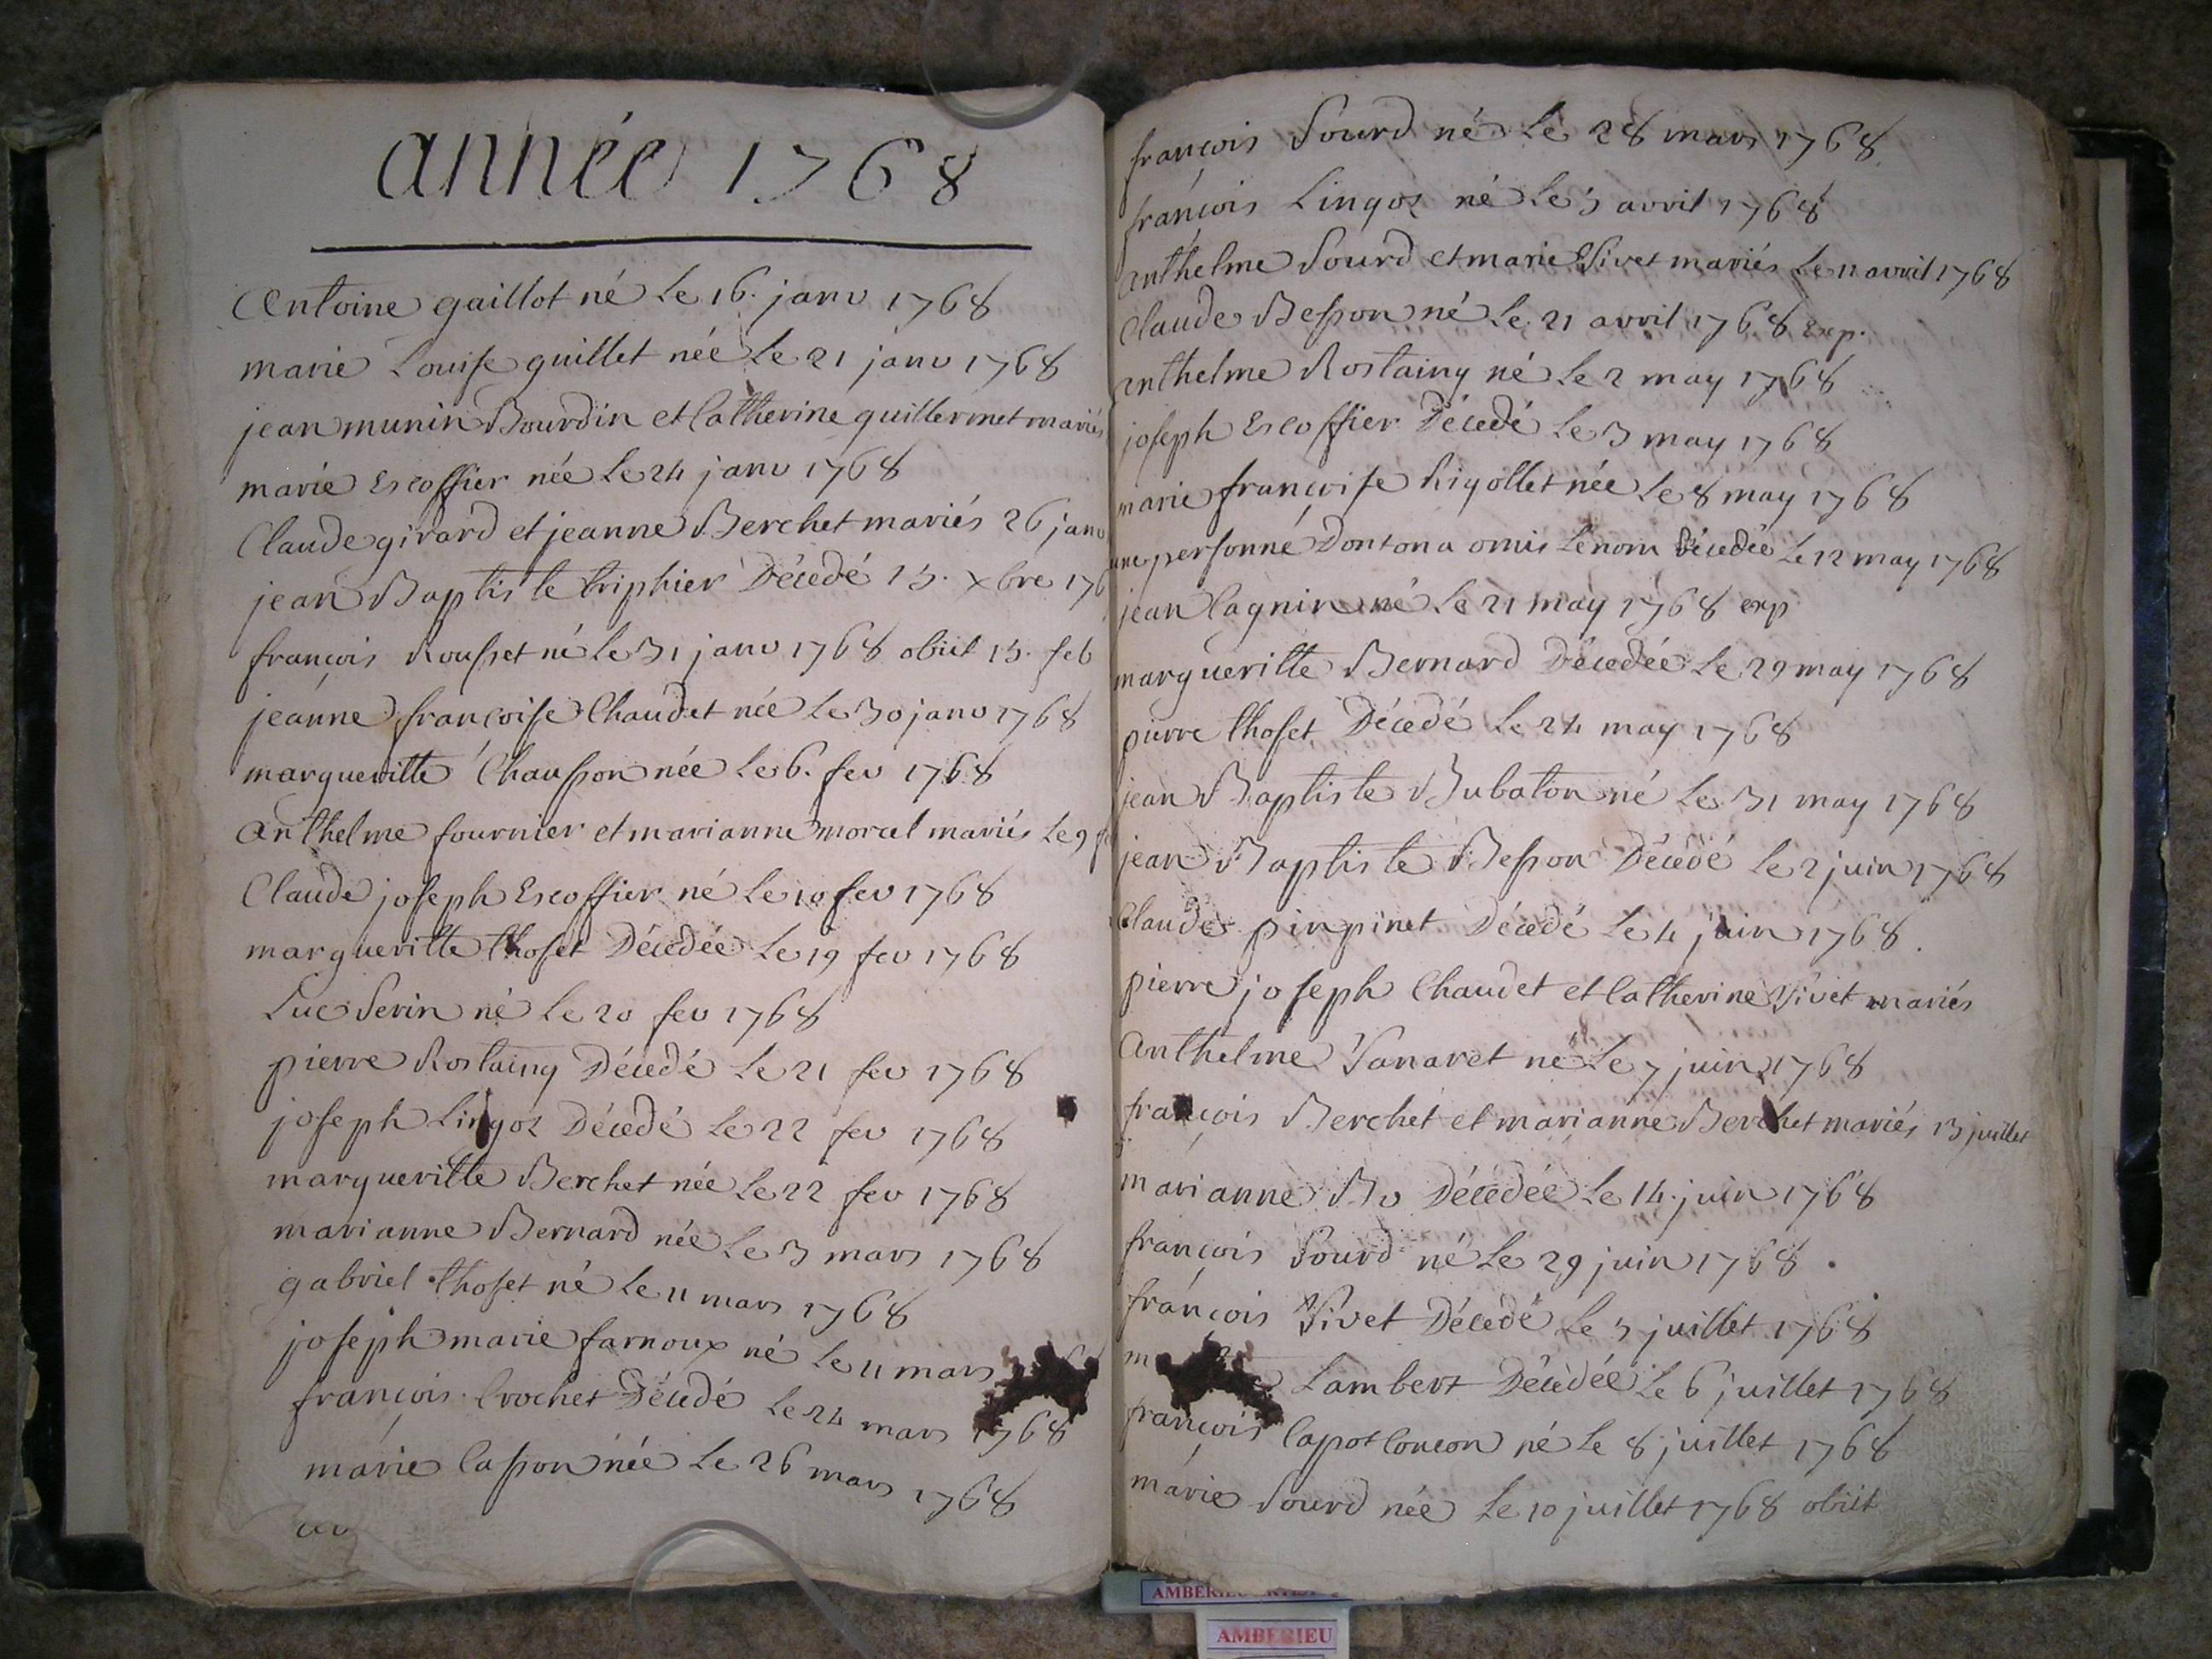 année 1768
Antoine gaillot né le 16. janv 1768
marie Louise guillet née le 21 janv 1768
jean munin Bourdin et Catherine guillermet mariés
marie Escoffier née le 24 janv 1768
Claude girard et jeanne Berchet mariés 26 janv
jean Baptiste triphier Décédé 15. xbre 176
françois Rousset né le 31 janv 1768 obiit 15. feb
jeanne françoise Chaudet née le 30 janv 1768
margueritte Chausson née le 6. fev 1768
Anthelme fournier et marianne morcel mariés le 9 fe
Claude joseph Escoffier né le 10 fev 1768
margueritte thoset Décédée le 19 fev 1768
Luc Serin né le 20 fev 1768
pierre Rostaing Décédé le 21 fev 1768
joseph Lingoz Décédé le 22 fev 1768
margueritte Berchet née le 22 fev 1768
marianne Bernard née le 3 mars 1768
gabriel thoset né le 11 mars 1768
joseph marie farnoux né le 11 mars
françois Crochet Décédé le 24 mars 1768
marie Casson née le 26 mars 1768
françois Sourd né le 28 mars 1768
françois Lingoz né le 5 avril 1768
anthelme Sourd et marie Vivet mariés le 11 avril 1768
Claude Besson né le 21 avril 1768 exp.
anthelme Rostaing né le 2 may 1768
joseph Escoffier Décédé le 3 may 1768
marie françoise Rigollet née le 8 may 1768
une personne Dont on a omis le nom Décédée le 12 may 1768
jean Cagnin né le 21 may 1768 exp
margueritte Bernard Décédée le 29 may 1768
pierre thoset Décédé le 24 may 1768
jean Baptiste Bubaton né le 31 may 1768
jean Baptiste Besson Décédé le 2 juin 1768
Claude pinpinet Décédé le 4 juin 1768.
pierre joseph Chaudet et Catherine Vivet mariés
Anthelme Vanaret né le 7 juin 1768
françois Berchet et marianne Berchet mariés 13 juillet
marianne Bo Décédée le 14. juin 1768
françois Sourd né le 29 juin 1768.
françois Vivet Décédé le 5 juillet 1768
Lambert Décédée le 6 juillet 1768
françois Capot Concon né le 8 juillet 1768
marie Sourd née le 10 juillet 1768 obiit
AMBERIEU